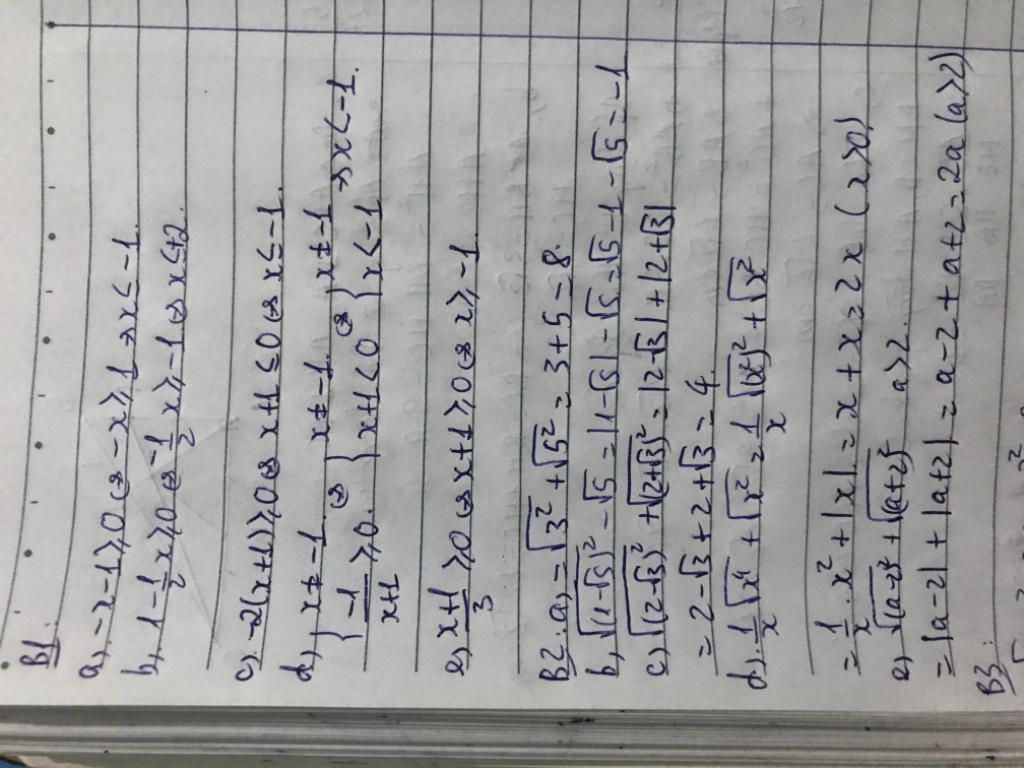 B1:
a) -x-1 ≥ 0 ⇔ -x ≥ 1 ⇒ x ≤ -1.
b) 1 - \frac{1}{2}x ≥ 0 ⇔ -\frac{1}{2}x ≥ -1 ⇔ x ≤ +2.
c) -2(x+1) ≥ 0 ⇔ x+1 ≤ 0 ⇔ x ≤ -1.
d) { x ≠ -1 ⇔ { x ≠ -1 ⇔ { x ≠ -1 ⇒ x < -1.
{ \frac{-1}{x+1} ≥ 0. { x+1 < 0 { x < -1
e) \frac{x+1}{3} ≥ 0 ⇔ x+1 ≥ 0 ⇔ x ≥ -1
B2: a) = √3² + √5² = 3 + 5 = 8.
b) √(1-√5)² - √5 = |1-√5| - √5 = √5 - 1 - √5 = -1
c) √(2-√3)² + √(2+√3)² = |2-√3| + |2+√3|
= 2 - √3 + 2 + √3 = 4.
d) \frac{1}{x} √x⁴ + √x² = \frac{1}{x} √(x²)² + √x²
= \frac{1}{x} . x² + |x| = x + x = 2x (x > 0)
e) √(a-2)² + √(a+2)² a > 2.
= |a-2| + |a+2| = a-2 + a+2 = 2a (a > 2)
B3: